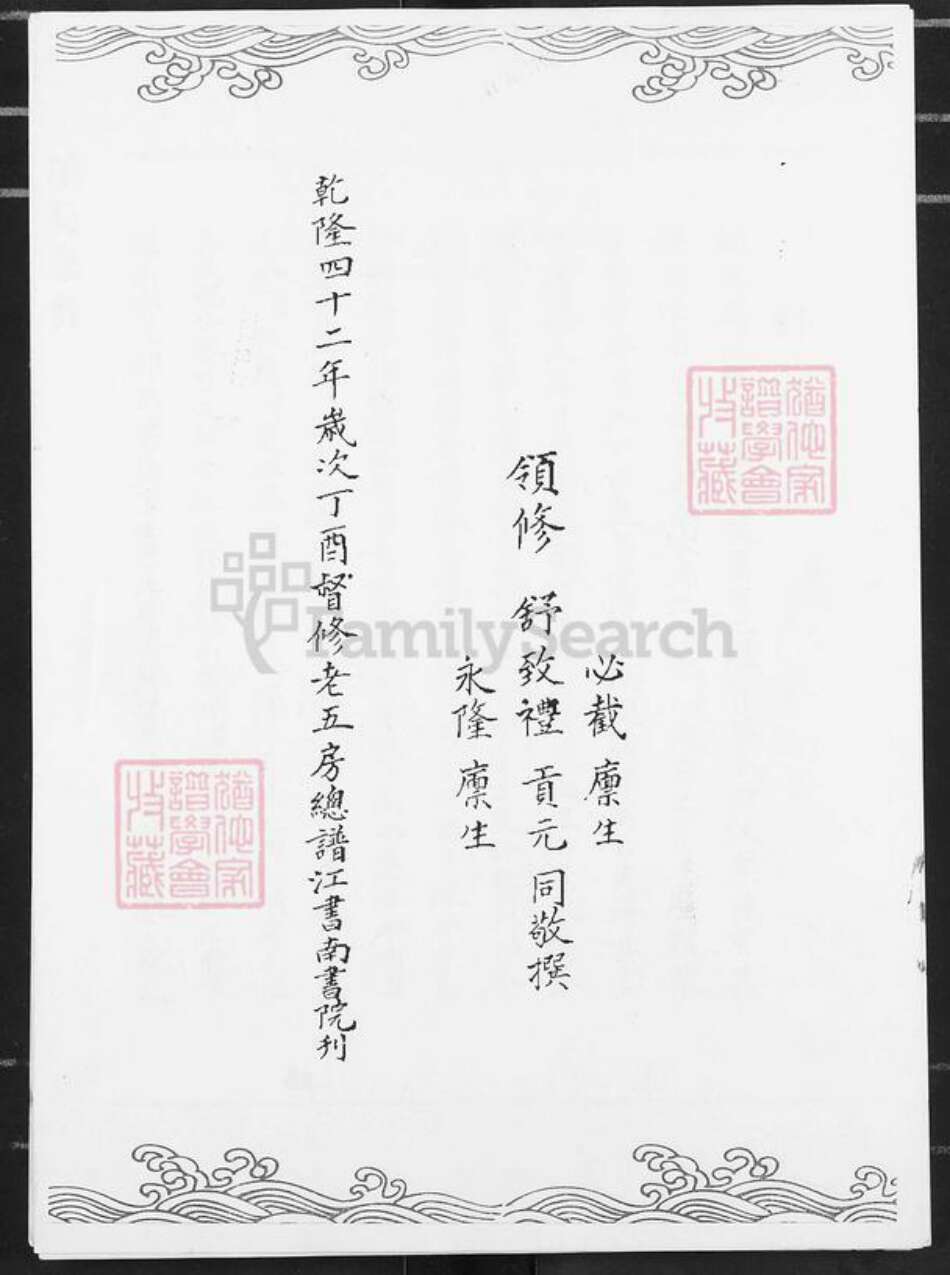 必截廩生
領修 舒致禮 貢元 同敬撰
永隆廩生
乾隆四十二年歲次丁酉督修老五房總譜江書南書院刊
FamilySearch
譜學會
收藏
譜學會
收藏